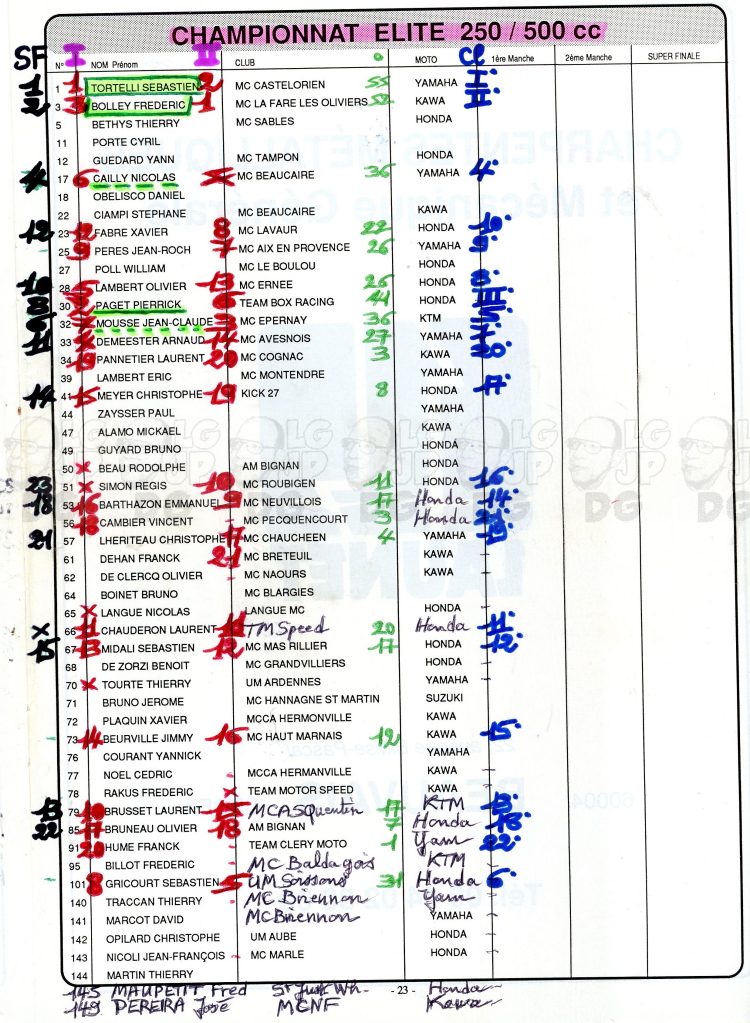 CHAMPIONNAT ELITE 250 / 500 cc
SF I II Cl
N° NOM Prénom CLUB MOTO 1ère Manche 2ème Manche SUPER FINALE
1 1 1 TORTELLI SEBASTIEN 2 MC CASTELORIEN 55 YAMAHA I
2 3 3 BOLLEY FREDERIC 1 MC LA FARE LES OLIVIERS KAWA II
5 BETHYS THIERRY MC SABLES HONDA
11 PORTE CYRIL
12 GUEDARD YANN MC TAMPON HONDA
4 17 6 CAILLY NICOLAS MC BEAUCAIRE 36 YAMAHA 4
18 OBELISCO DANIEL
22 CIAMPI STEPHANE MC BEAUCAIRE KAWA
12 23 12 FABRE XAVIER 8 MC LAVAUR 22 HONDA 10
25 PERES JEAN-ROCH 7 MC AIX EN PROVENCE 26 YAMAHA 9
27 POLL WILLIAM MC LE BOULOU HONDA
10 28 LAMBERT OLIVIER 13 MC ERNEE 26 HONDA 8
30 PAGET PIERRICK 6 TEAM BOX RACING 41 HONDA III
32 MOUSSE JEAN-CLAUDE 3 MC EPERNAY 36 KTM 5
11 33 DEMEESTER ARNAUD 14 MC AVESNOIS 27 YAMAHA 7
34 19 PANNETIER LAURENT 20 MC COGNAC 3 KAWA 20
39 LAMBERT ERIC MC MONTENDRE YAMAHA
14 41 15 MEYER CHRISTOPHE 19 KICK 27 8 HONDA 17
44 ZAYSSER PAUL YAMAHA
47 ALAMO MICKAEL KAWA
49 GUYARD BRUNO HONDA
50 x BEAU RODOLPHE AM BIGNAN HONDA
23 51 x SIMON REGIS 10 MC ROUBIGEN 11 HONDA 16
18 53 BARTHAZON EMMANUEL 9 MC NEUVILLOIS 17 Honda 14
56 18 CAMBIER VINCENT - MC PECQUENCOURT 3 Honda 21
21 57 LHERITEAU CHRISTOPHE 17 MC CHAUCHEEN 4 YAMAHA 19
61 DEHAN FRANCK 21 MC BRETEUIL KAWA
62 DE CLERCQ OLIVIER - MC NAOURS KAWA
64 BOINET BRUNO MC BLARGIES
65 x LANGUE NICOLAS LANGUE MC HONDA
x 66 11 CHAUDERON LAURENT 11 TM Speed 20 Honda 11
15 67 13 MIDALI SEBASTIEN 12 MC MAS RILLIER 17 HONDA 12
68 DE ZORZI BENOIT MC GRANDVILLIERS HONDA
70 x TOURTE THIERRY UM ARDENNES YAMAHA
71 BRUNO JEROME MC HANNAGNE ST MARTIN SUZUKI
72 PLAQUIN XAVIER MCCA HERMONVILLE KAWA
73 14 BEURVILLE JIMMY 16 MC HAUT MARNAIS 12 KAWA 15
76 COURANT YANNICK YAMAHA
77 NOEL CEDRIC MCCA HERMANVILLE KAWA
78 RAKUS FREDERIC x TEAM MOTOR SPEED KAWA
13 79 10 BRUSSET LAURENT 15 MCA SQuentin 17 KTM 13
22 85 17 BRUNEAU OLIVIER 18 AM BIGNAN 7 Honda 18
91 20 HUME FRANCK - TEAM CLERY MOTO 1 Yam 22
95 BILLOT FREDERIC MC Baldagois KTM
101 8 GRICOURT SEBASTIEN 5 UM Soissons 31 Honda 6
140 TRACCAN THIERRY MC Briennon Yam
141 MARCOT DAVID MC Briennon YAMAHA
142 OPILARD CHRISTOPHE UM AUBE HONDA
143 NICOLI JEAN-FRANÇOIS MC MARLE HONDA
144 MARTIN THIERRY
145 MAUPETIT Fred St Just - 23 - Honda
149 PEREIRA José MCNF Kawa